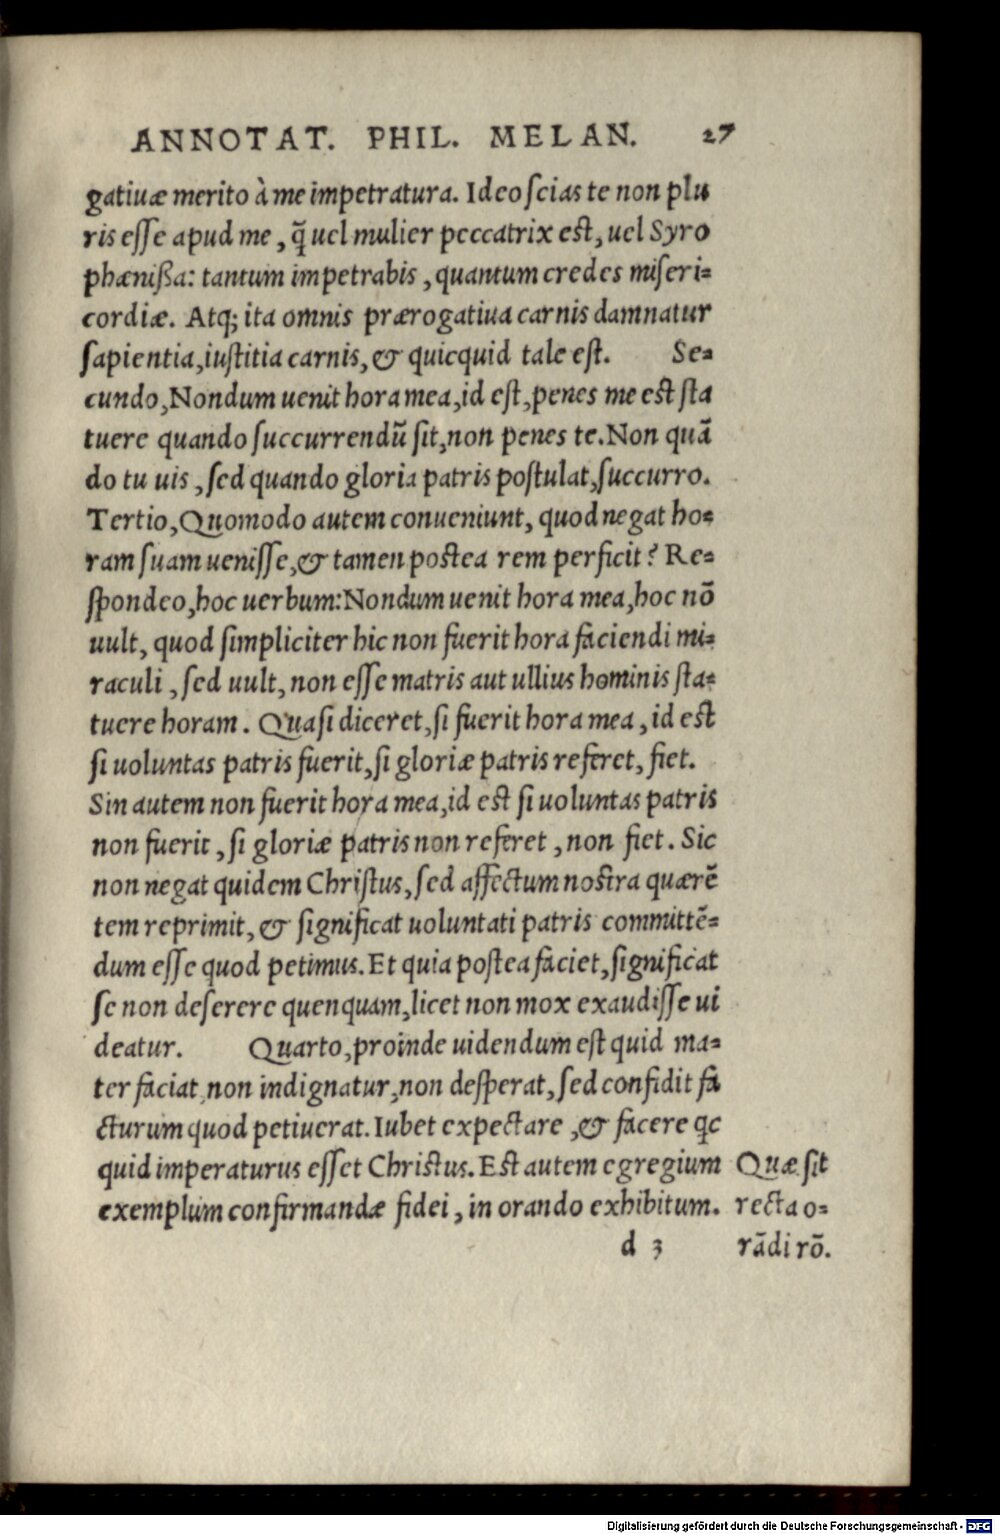 ANNOTAT. PHIL. MELAN. 27
gatiuæ merito à me impetratura. Ideo scias te non plu
ris esse apud me, q̃ uel mulier peccatrix est, uel Syro
phænißa: tantum impetrabis, quantum credes miseri=
cordiæ. Atq; ita omnis prærogatiua carnis damnatur
sapientia, iustitia carnis, & quicquid tale est. Se=
cundo, Nondum uenit hora mea, id est, penes me est sta
tuere quando succurrendũ sit, non penes te. Non quã
do tu uis, sed quando gloria patris postulat, succurro.
Tertio, Quomodo autem conueniunt, quod negat ho=
ram suam uenisse, & tamen postea rem perficit? Re=
spondeo, hoc uerbum: Nondum uenit hora mea, hoc nõ
uult, quod simpliciter hic non fuerit hora faciendi mi=
raculi, sed uult, non esse matris aut ullius hominis sta=
tuere horam. Quasi diceret, si fuerit hora mea, id est
si uoluntas patris fuerit, si gloriæ patris referet, fiet.
Sin autem non fuerit hora mea, id est si uoluntas patris
non fuerit, si gloriæ patris non referet, non fiet. Sic
non negat quidem Christus, sed affectum nostra quærẽ
tem reprimit, & significat uoluntati patris committẽ=
dum esse quod petimus. Et quia postea faciet, significat
se non deserere quenquam, licet non mox exaudisse ui
deatur. Quarto, proinde uidendum est quid ma=
ter faciat, non indignatur, non desperat, sed confidit fa
cturum quod petiuerat. Iubet expectare, & facere qc
quid imperaturus esset Christus. Est autem egregium
exemplum confirmandæ fidei, in orando exhibitum.
Quæ sit
recta o=
rãdi rõ.
d 3
Digitalisierung gefördert durch die Deutsche Forschungsgemeinschaft - DFG